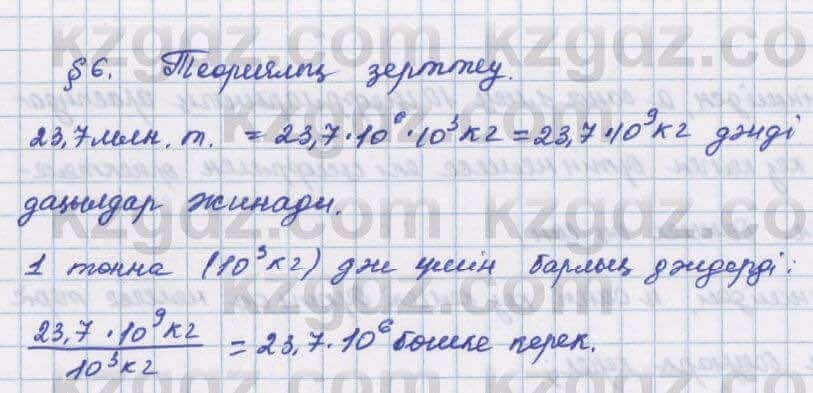 § 6. Теориялық зерттеу.
23,7 млн. т. = 23,7·10⁶·10³кг = 23,7·10⁹кг дәнді
дақылдар жинады.
1 тонна (10³кг) дән үшін барлық дәндерді:
23,7·10⁹кг / 10³кг = 23,7·10⁶ бөшке керек.
kzgdz.com